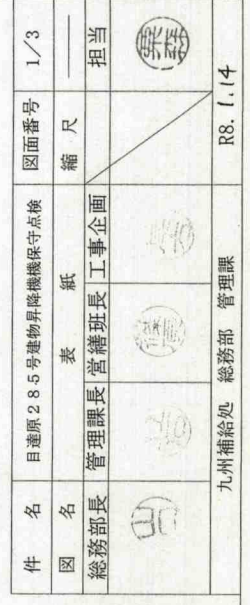 件 名 目達原285号建物昇降機保守点検 図面番号 1/3
図 名 表 紙 縮 尺 ―――
総務部長 管理課長 営繕班長 工事企画 担当
九州補給処 総務部 管理課 R8.1.14